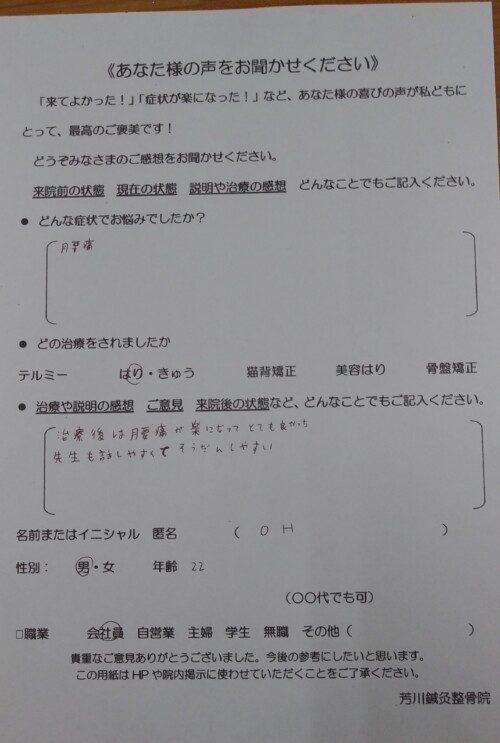 《あなた様の声をお聞かせください》
「来てよかった！」「症状が楽になった！」など、あなた様の喜びの声が私どもに
とって、最高のご褒美です！
どうぞみなさまのご感想をお聞かせください。
来院前の状態 現在の状態 説明や治療の感想 どんなことでもご記入ください。
● どんな症状でお悩みでしたか？
腰痛
● どの治療をされましたか
テルミー はり・きゅう 猫背矯正 美容はり 骨盤矯正
● 治療や説明の感想 ご意見 来院後の状態など、どんなことでもご記入ください。
治療後は腰痛が楽になってとても良かった
先生も話しやすくてそうだんしやすい
名前またはイニシャル 匿名 （ O H ）
性別： 男・女 年齢 22
（〇〇代でも可）
□職業 会社員 自営業 主婦 学生 無職 その他（ ）
貴重なご意見ありがとうございました。今後の参考にしたいと思います。
この用紙はHPや院内掲示に使わせていただくことをご了承ください。
芳川鍼灸整骨院